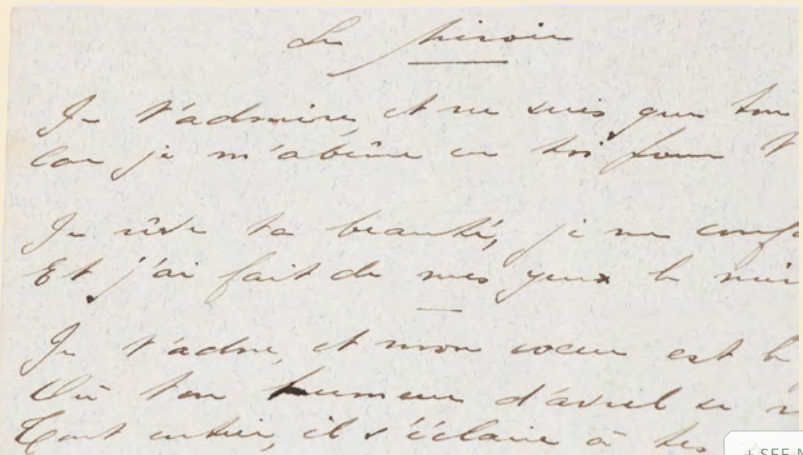 Le Miroir
Je t'admire, et ne suis que ton
Car je m'abîme en toi pour t
Je rêve ta beauté, je me confo
Et j'ai fait de mes yeux le miro
Je t'adore, et mon coeur est le
Où ton humeur d'avril se m
Tout entier, il s'éclaire à tes
+ SEE M